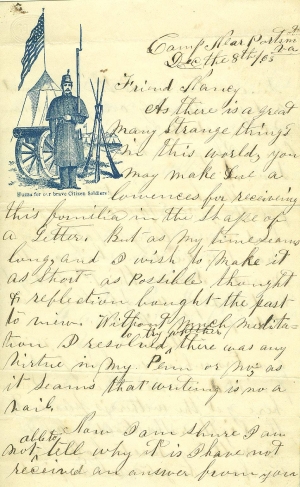 Camp Near
Dec the 8th / 63
Friend Nancy
As there is a great
many Strange things
in this world, you
may make Due a
Huzza for our brave Citizen Soldiers
lowences for receiving
this in the Shape of
a Letter. But as my time seams
long, and I wish to make it
as short as Possible thought
& reflection bought the past
to view. Without much medita
tion I resolved to try whether there was any
virtue in my Penn or no, as
it seams that writing is no a
vail.
Now I am Shure I am
not able to tell why it is I have not
received an answer from you